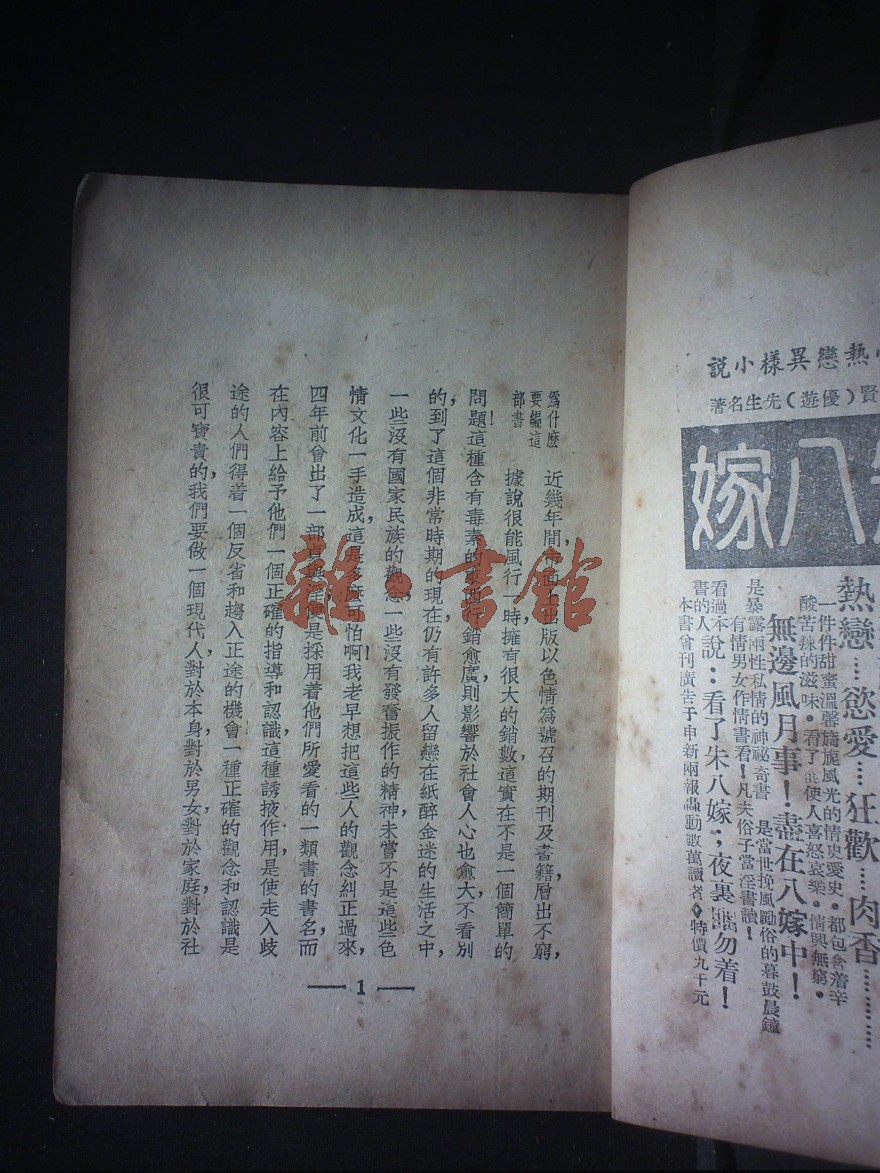 熱戀異樣小說
賢(優遊)先生名著
八嫁
熱戀…慾愛…狂歡……肉香…………
一件件甜蜜溫馨旖旎風光的情史愛史。都包含着辛
酸苦辣的滋味。看了使人喜怒哀樂。情興無窮。
無邊風月事！盡在八嫁中！
是暴露兩性私情的神祕奇書 是當世挽風勵俗的暮鼓晨鐘
有情男女作情書看！凡夫俗子當淫書讀！
看過本書的人說：看了朱八嫁；夜裏勿着！
本書曾刊廣告于申新兩報轟動數萬讀者◇特價九千元
為什麽
要編這
部書
近幾年間，市面上出版以色情為號召的期刊及書籍層出不窮，
據說很能風行一時，擁有很大的銷數，這實在不是一個簡單的
問題！這種含有毒素的東西，行銷愈廣，則影響於社會人心也愈大，不看別
的，到了這個非常時期的現在，仍有許多人留戀在紙醉金迷的生活之中，
一些沒有國家民族的觀念，一些沒有發奮振作的精神，未嘗不是這些色
情文化一手造成，這是多麽可怕啊！我老早想把這些人的觀念糾正過來，
四年前會出了一部貞與淫，便是採用着他們所愛看的一類書的書名，而
在內容上給予他們一個正確的指導和認識，這種誘掖作用，是使走入歧
途的人們，得着一個反省和趨入正途的機會，一種正確的觀念和認識，是
很可寶貴的，我們要做一個現代人，對於本身，對於男女，對於家庭，對於社
— 1 —
雜·書館